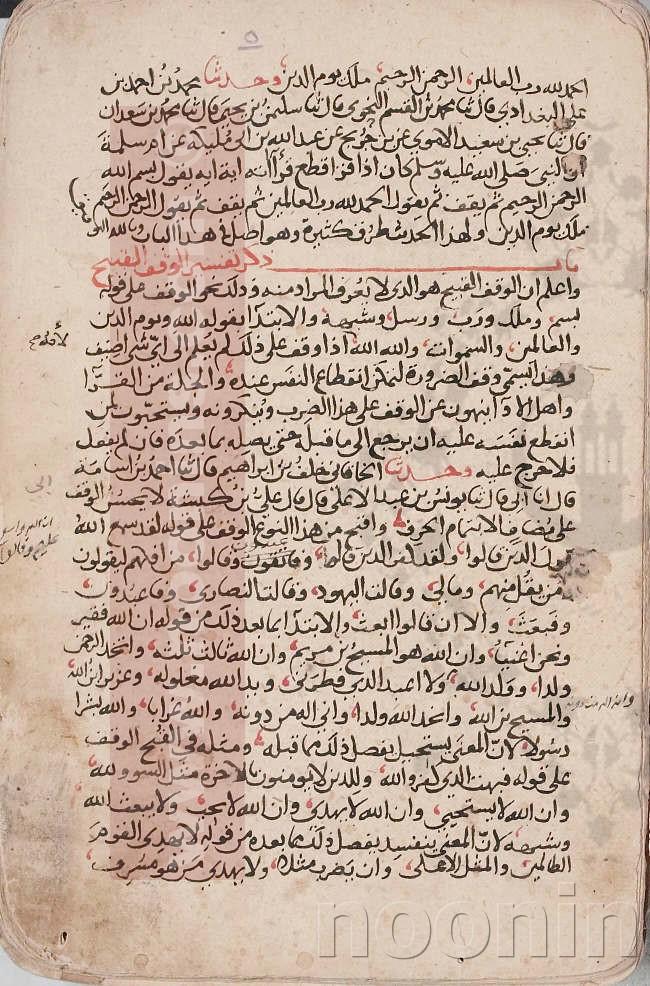 ٥
الحمد لله رب العالمين الرحمن الرحيم ملك يوم الدين وحدثنا محمد بن احمد بن
علي البغدادي قال ثنا محمد بن القسم النحوي قال ثنا سليمن بن يحيى قال ثنا محمد بن سعدان
قال ثنا يحيى بن سعيد الاموي عن بن جريج عن عبد الله بن ابي مليكة عن ام سلمة
ان النبي صلى الله عليه وسلم كان اذا قرا قطع قراانه اية اية يقول بسم الله
الرحمن الرحيم ثم يقف ثم يقول الحمد لله رب العالمين ثم يقف ثم يقول الرحمن الرحيم
ملك يوم الدين ولهذا الحديث طرق كثيرة وهو اصل في هذا الباب وبالله التوفيق
باب ذكر تفسير الوقف القبيح
واعلم ان الوقف القبيح هو الذي لا يعرف المراد منه وذلك نحو الوقف على قوله
بسم وملك ورب ورسل وشبهه والابتدا بقوله الله ويوم الدين
والعالمين والسموات والله الله اذا وقف على ذلك لم يعلم الى اي شي اضيف
وهذا يسمى وقف الضرورة لتمكن انقطاع النفس عنده والجلة من القرا
واهل الادا ينهون عن الوقف على هذا الضرب وينكرونه ويستحبون لمن
انقطع نفسه عليه ان يرجع الى ما قبله حتى يصله بما بعده فان لم يفعل
فلا حرج عليه وحدثنا الخاقاني خلف بن ابراهيم قال ثنا احمد بن اسامة
قال ثنا ابي قال ثنا يونس بن عبد الاعلى قال قال علي بن كبسة لا يحسن الوقف
على مضاف الا بتمام الحرف واقبح من هذا النوع الوقف على قوله لقد سمع الله
قول الذين قالوا ولقد كفر الذين قالوا وقالوا من افكهم ليقولون
ومن يقل منهم ومالي وقالت اليهود وقالت النصارى وفاعبدون
وفبعث والا ان قالوا ابعث والابتدا بما بعد ذلك من قوله ان الله فقير
ونحن اغنيا وان الله هو المسيح بن مريم وان الله ثالث ثلثه واتخذ الرحمن
ولدا وولد الله ولا اعبد الذي فطرني ويد الله مغلوله وعزير ابن الله
والمسيح بن الله واتخذ الله ولدا واني اله من دونه والله غرابا والله بشرا
رسولا لان المعنى يستحيل بفصل ذلك مما قبله ومثله في القبح الوقف
على قوله فبهت الذي كفر والله وللذين لا يومنون بالاخرة مثل السوء ولله
وان الله لا يستحيي وان الله لا يهدي وان الله لا يحب ولا يبعث الله
وشبهه لان المعنى ينفسد بفصل ذلك مما بعده من قوله لا يهدي القوم
الظالمين والمثل الاعلى وان يضرب مثلا ولا يهدي من هو مسرف
noonin